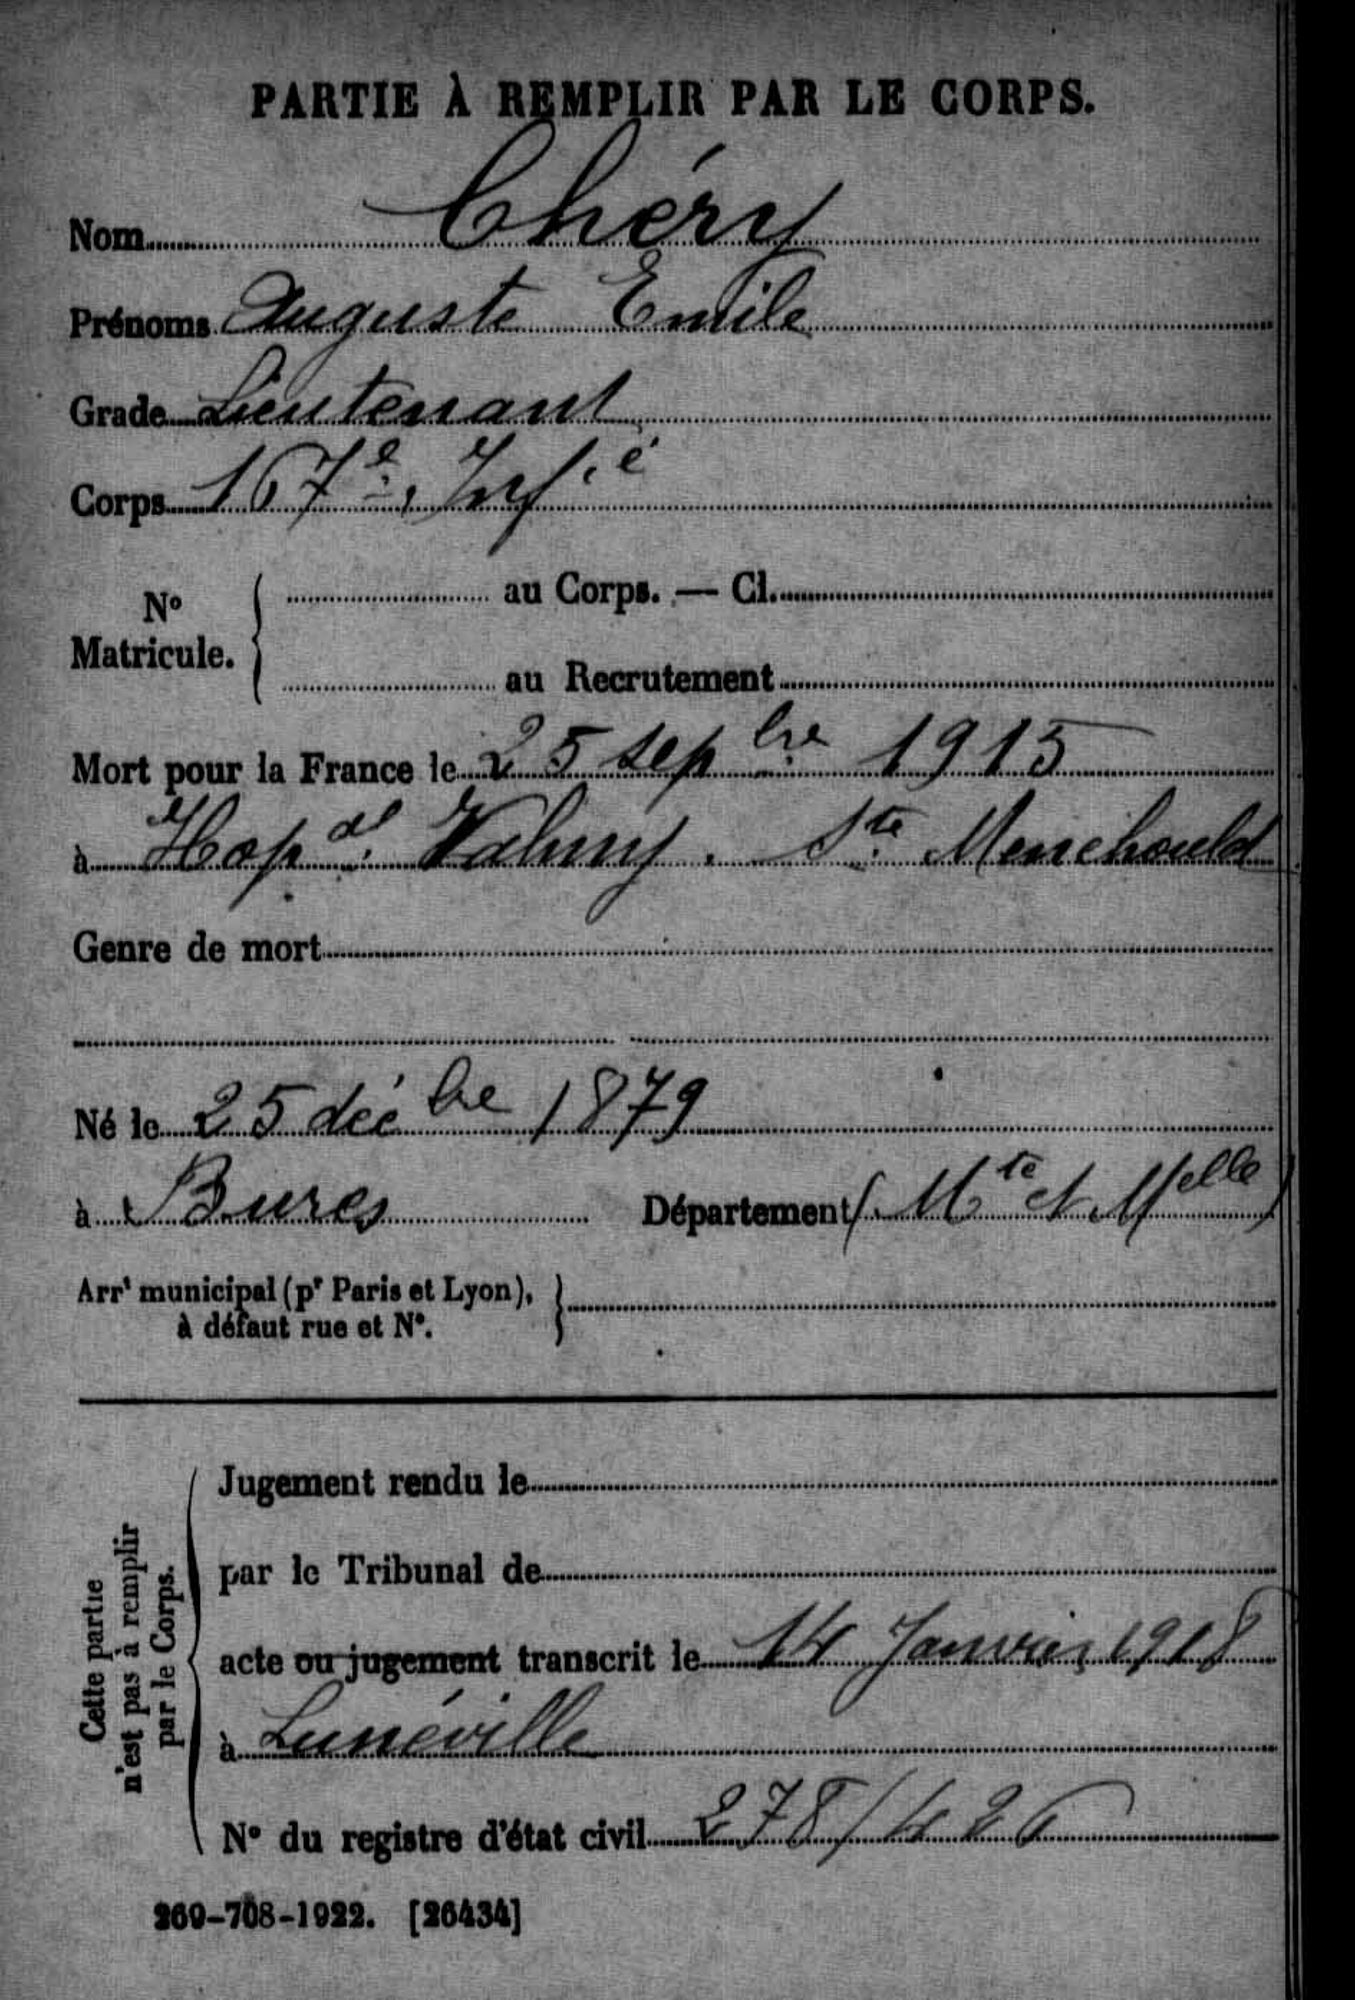 PARTIE À REMPLIR PAR LE CORPS.
Nom Chéry
Prénoms Auguste Emile
Grade Lieutenant
Corps 167e Infie
No Matricule. { au Corps. — Cl.
au Recrutement
Mort pour la France le 25 sepbre 1915
à Hopal Valmy. Ste Menehould
Genre de mort
Né le 25 décbre 1879
à Bures Département (Mte et Melle)
Arrt municipal (pr Paris et Lyon),
à défaut rue et No.
Cette partie
n'est pas à remplir
par le Corps.
Jugement rendu le
par le Tribunal de
acte ou jugement transcrit le 14 Janvier 1918
à Lunéville
No du registre d'état civil 278/426
269-708-1922. [26434]